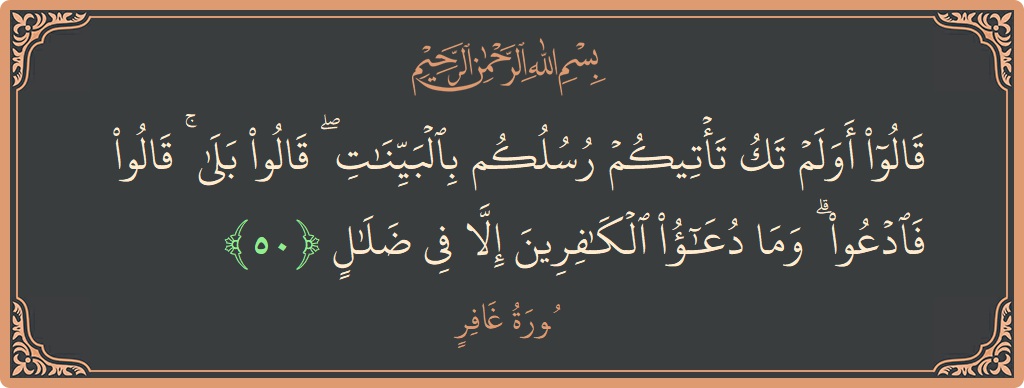 بِسْمِ اللَّهِ الرَّحْمَٰنِ الرَّحِيمِ
قَالُوٓا۟ أَوَلَمْ تَكُ تَأْتِيكُمْ رُسُلُكُم بِٱلْبَيِّنَٰتِ ۖ قَالُوا۟ بَلَىٰ ۚ قَالُوا۟
فَٱدْعُوا۟ ۗ وَمَا دُعَٰٓؤُا۟ ٱلْكَٰفِرِينَ إِلَّا فِى ضَلَٰلٍ ﴿٥٠﴾
سُورَةُ غَافِرٍ